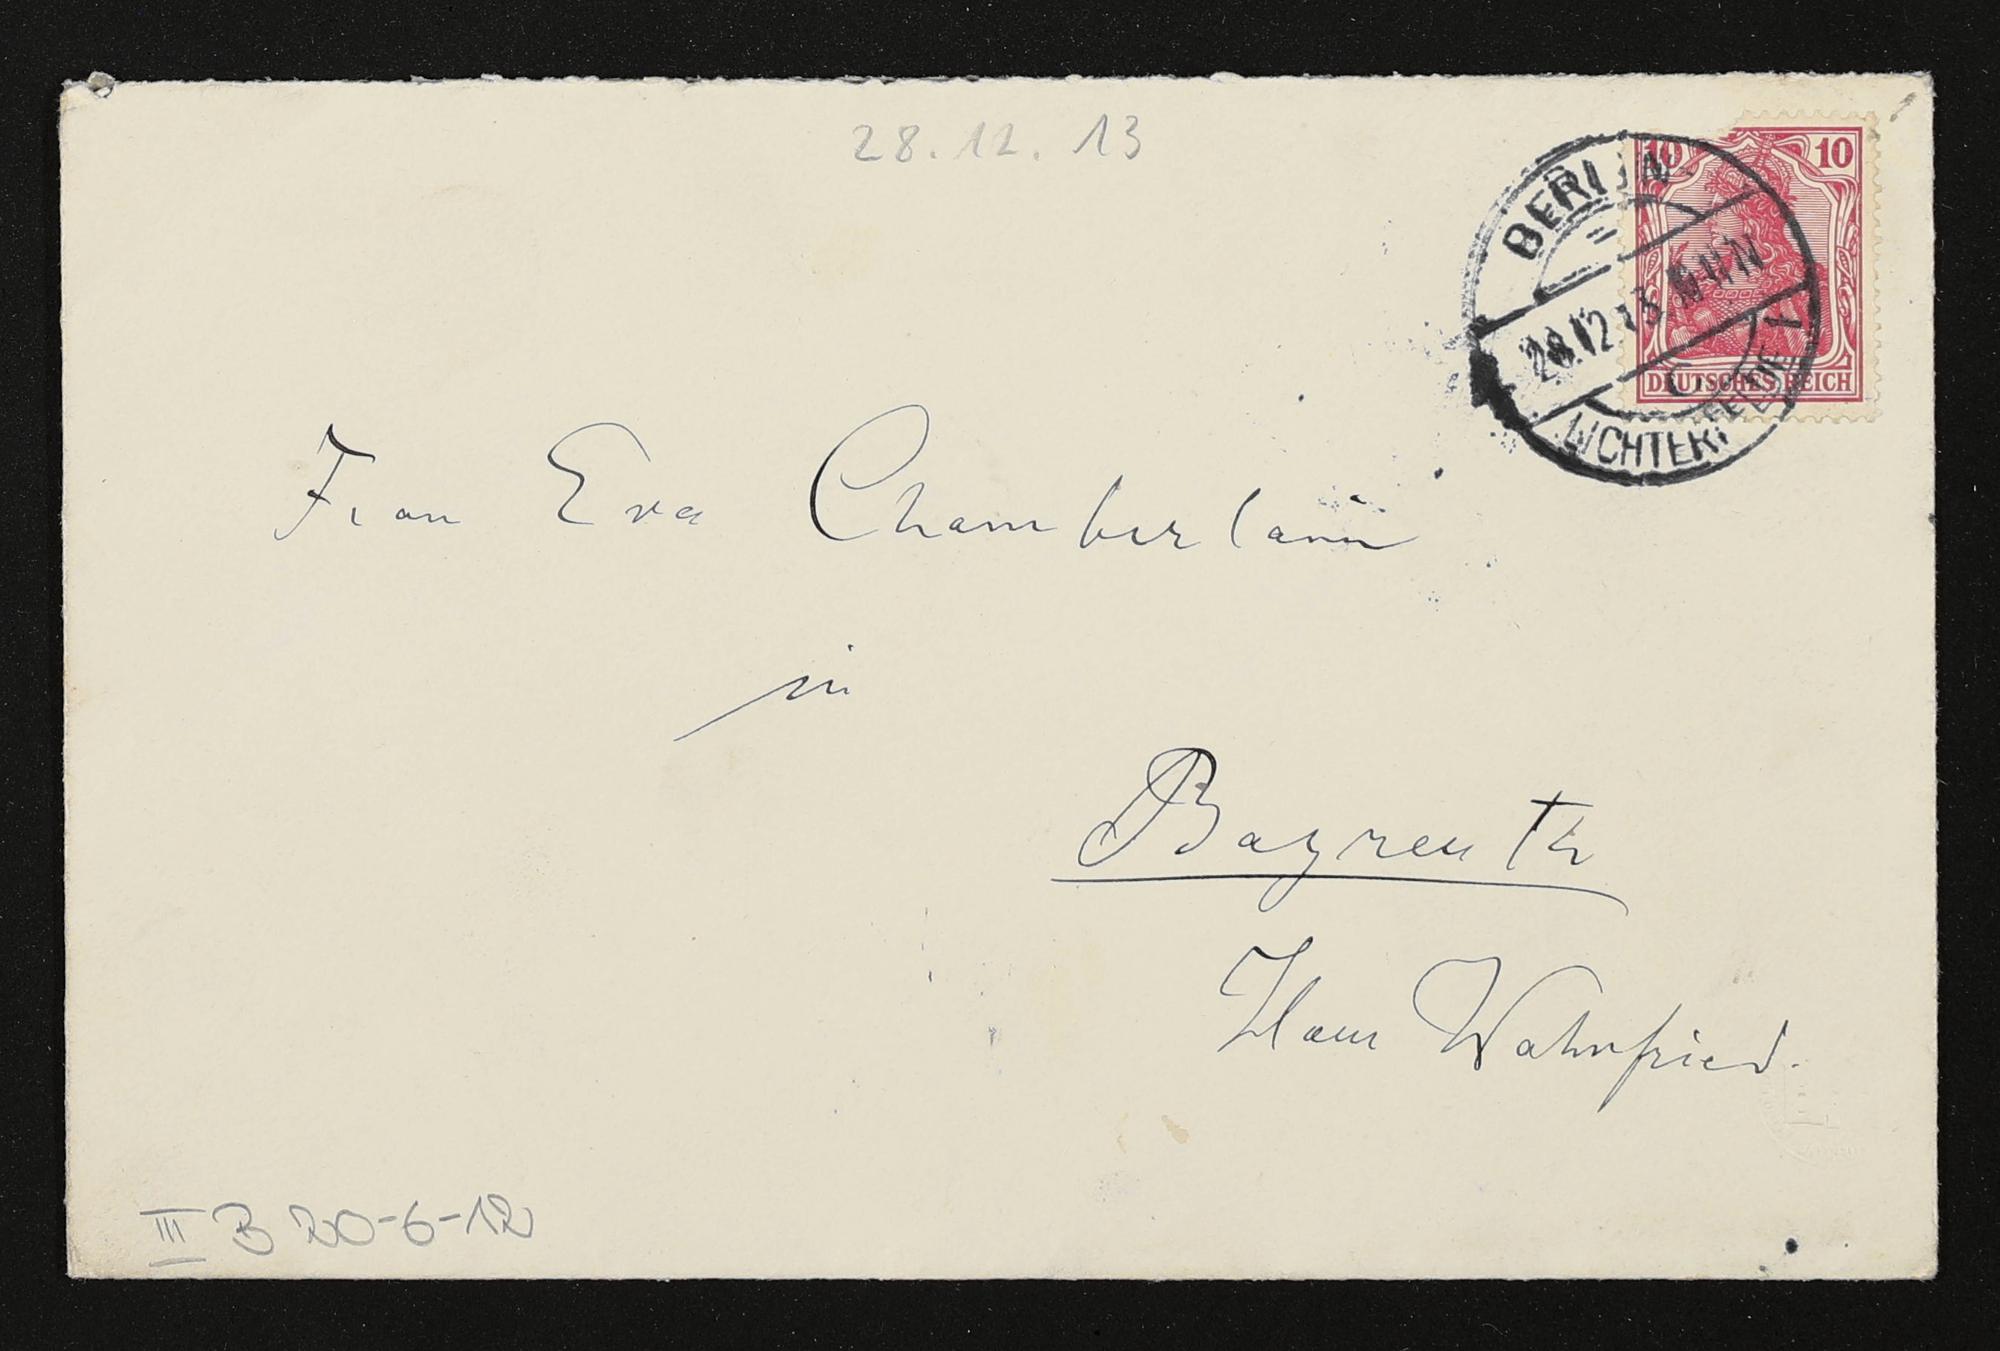 28.12.13
10 10
DEUTSCHES REICH
BERLIN
28.12.13. 10-11 N
LICHTERFELDE 1
C
Frau Eva Chamberlain
in
Bayreuth
Haus Wahnfried.
III B 20-6-12